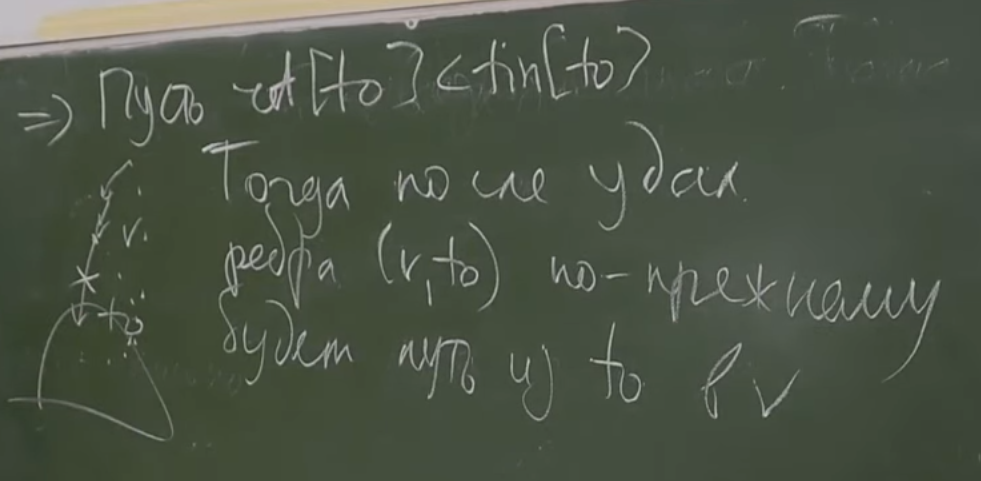 ⇒ Пусть ret[to] < tin[to]
Тогда после удал.
ребра (v, to) по-прежнему
будет путь из to в v
v.
to